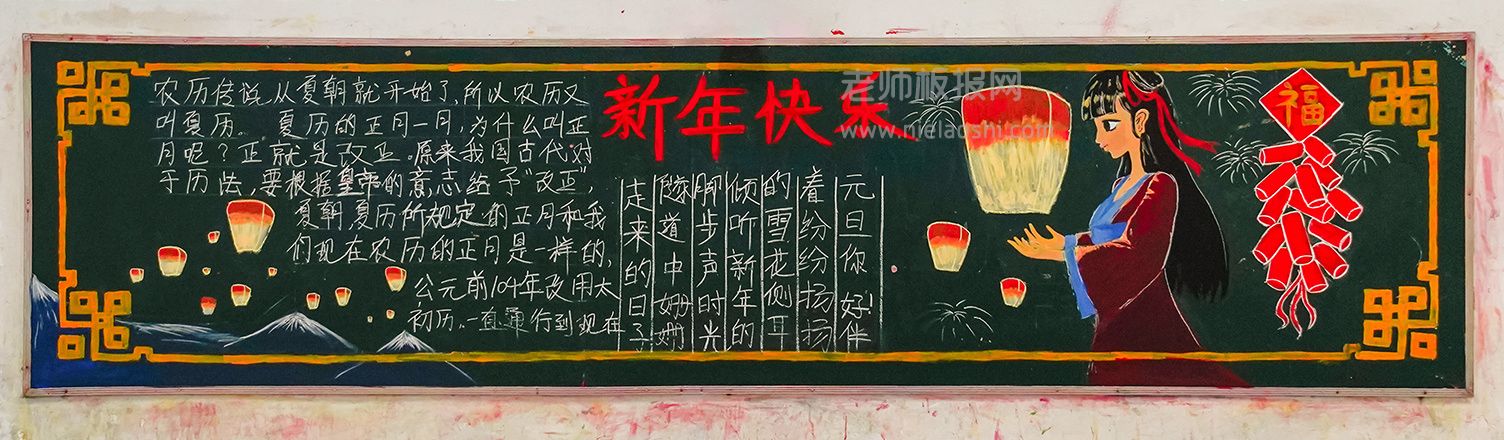 农历传说从夏朝就开始了,所以农历又
叫夏历。夏历的正月一月,为什么叫正
月呢?正就是改正。原来我国古代对
于历法,要根据皇帝的意志给予“改正”,
夏朝,夏历所规定的正月和我
们现在农历的正月是一样的,
公元前104年改用太
初历。一直通行到现在
新年快乐
老师板报网
元旦你好!伴
着纷纷扬扬
的雪花侧耳
倾听新年的
脚步声时光
隧道中姗姗
走来的日子
福